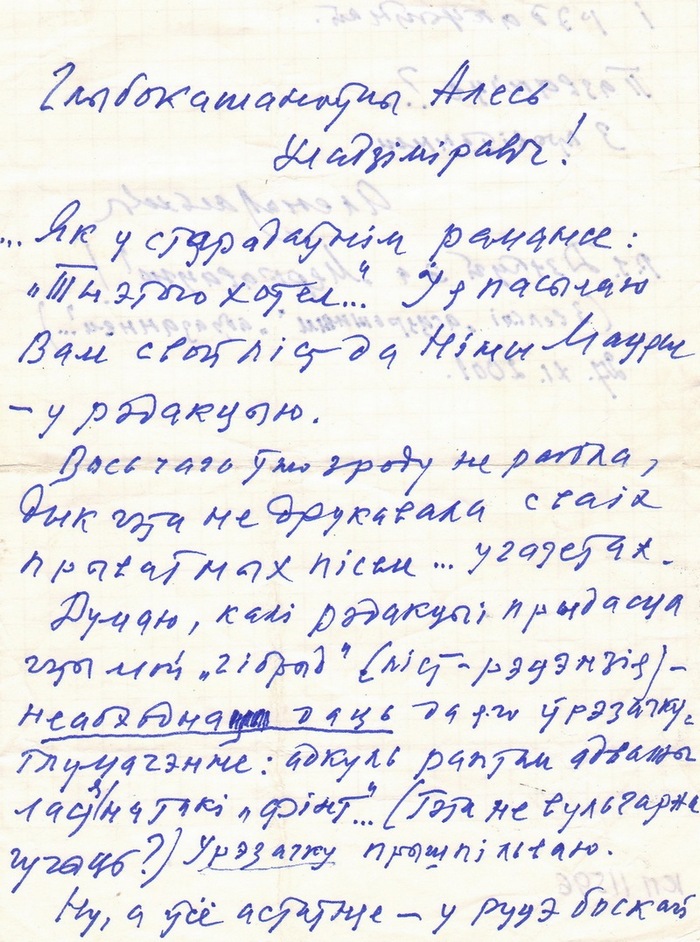 Глыбокашаноўны Алесь
Уладзіміравіч!
... Як у старадаўнім рамансе:
"Ты этого хотел..." І я пасылаю
Вам свой ліст да Ніны Мацяш
– у рэдакцыю.
Вось чаго ўжо зроду не рабіла,
дык гэта не друкавала сваіх
прыватных пісьм... у газетах.
Думаю, калі рэдакцыі прыдасца
гэты мой "гібрыд" (ліст-рэцэнзія) –
неабходна даць да яго ўрэзачку-
тлумачэнне: адкуль раптам адважы
лася на такі "фінт"... (Гэта не вульгарна
гучаць?) Урэзачку прышпільваю.
Ну, а ўсё астатняе – у руцэ боскай